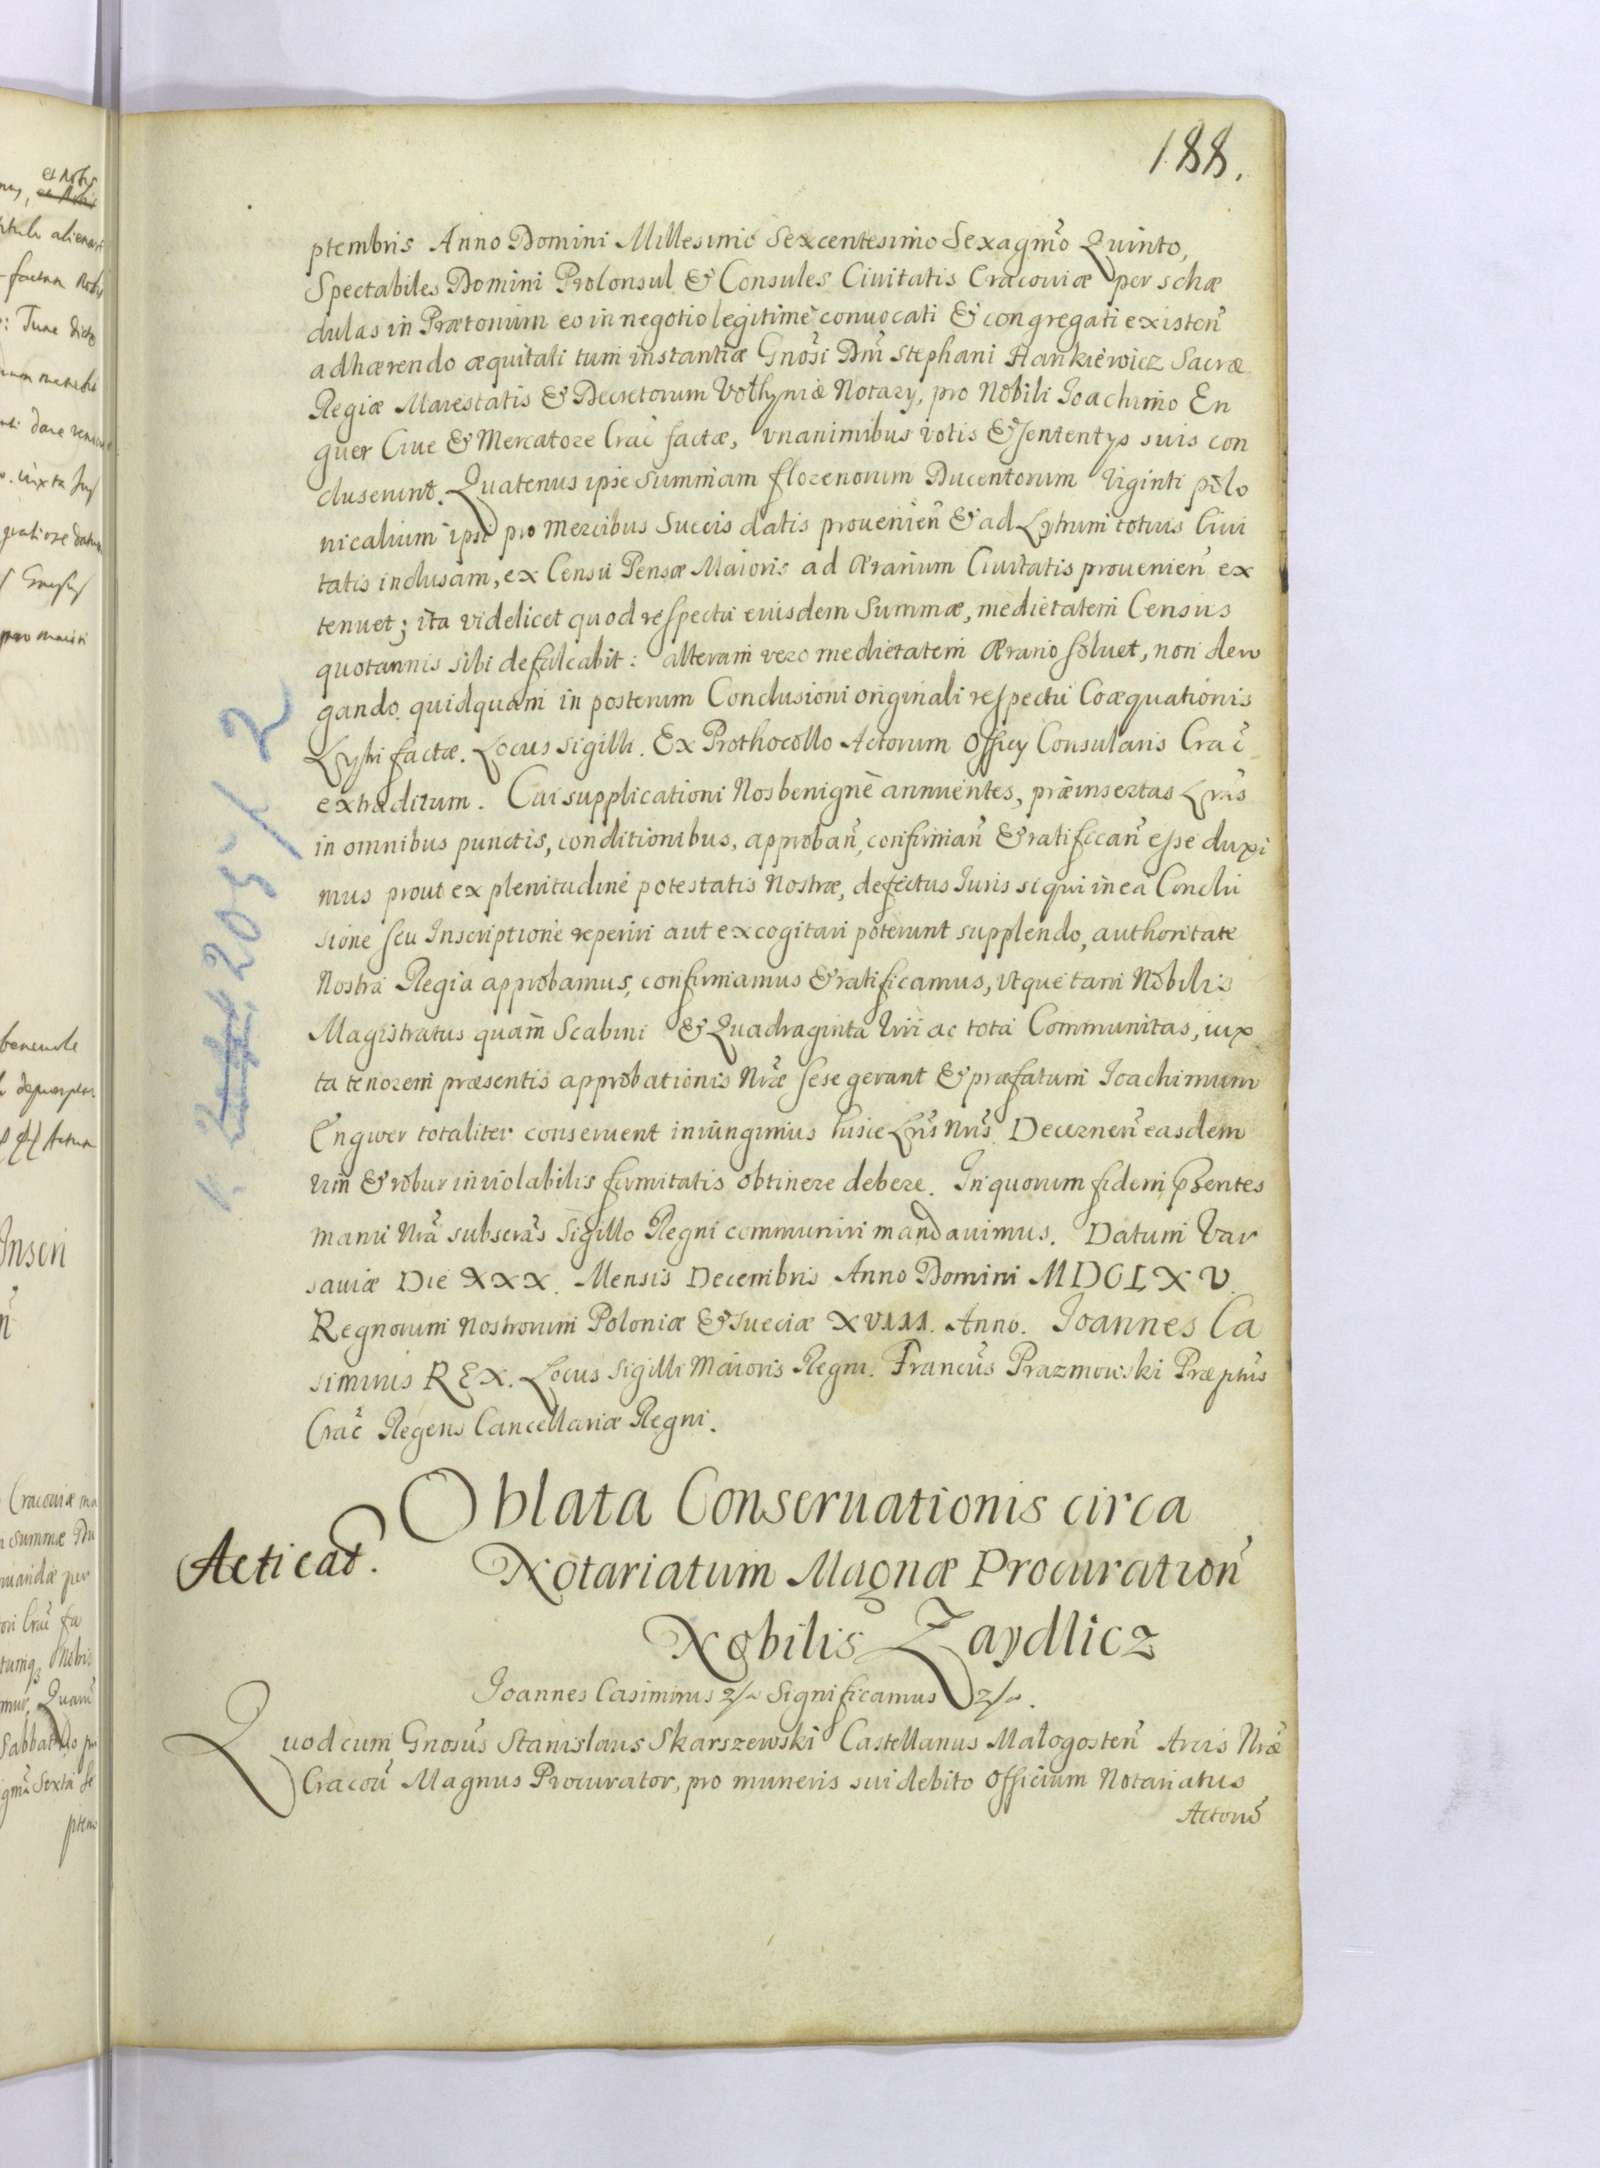 188.
ptembris Anno Domini Millesimo Sexcentesimo Sexagm̃o Quinto,
Spectabiles Domini ProConsul & Consules Ciuitatis Cracouiæ per schæ
dulas in Prætorium eo in negotio legitimè conuocati & congregati existeñ
adhærendo æquitati tum instantiæ Gnõsi Dñi Stephani Hankiewicz Sacræ
Regiæ Maiestatis & Decretorum Vołhyniæ Notarÿ, pro Nobili Ioachimo En
guer Ciue & Mercatore Crac̃ factæ, vnanimibus votis & sententÿs suis con
cluserunt. Quatenus ipse Summam florenorum Ducentorum Viginti polo
nicalium ipsi pro mercibus Suecis datis prouenieñ & ad Lytrum totius Ciui
tatis inclusam, ex Censu Pensæ Maioris ad Ærarium Ciuitatis prouenieñ ex
tenuet; ita videlicet quod respectu eiusdem Summæ, medietatem Census
quotannis sibi defalcabit: alteram vero medietatem Ærario soluet, non dero
gando quidquam in posterum Conclusioni originali respectu Coæquationis
Lytri factæ. Locus Sigilli. Ex Prothocollo Actorum Officÿ Consularis Crac̃
extraditum. Cui supplicationi Nos benignè annuentes, præinsertas Lr̃as
in omnibus punctis, conditionibus, approbañ, confirmañ & ratificañ esse duxi
mus prout ex plenitudine potestatis Nostræ, defectus Iuris si qui in ea Conclu
sione seu Inscriptione reperiri aut excogitari poterunt supplendo, authoritate
Nostra Regia approbamus, confirmamus & ratificamus, vtque tam Nobilis
Magistratus quam Scabini & Quadraginta Viri ac tota Communitas, iux
ta tenorem præsentis approbationis Nr̃æ sese gerant & præfatum Ioachimum
Enguer totaliter conseruent iniungimus hisce Lr̃is Nr̃is. Decerneñ easdem
vim & robur inviolabilis firmitatis obtinere debere. In quorum fidem p̃sentes
manu Nr̃a subscr̃as Sigillo Regni communiri mandauimus. Datum Var
sauiæ Die XXX. Mensis Decembris Anno Domini MDCLXV.
Regnorum Nostrorum Poloniæ & Sueciæ XVIII. Anno. Ioannes Ca
simirus REX. Locus Sigilli Maioris Regni. Franc̃us Prazmowski Præptũs
Crac̃ Regens Cancellariæ Regni.
Oblata Conseruationis circa
Acticat̃.
Notariatum Magnæ Procuratioñ
Nobilis Zaydlicz
Ioannes Casimirus &c Significamus &c.
Quod cum Gnosũs Stanislaus Skarszewski Castellanus Małogosteñ Arcis Nr̃æ
Cracoũ Magnus Procurator, pro muneris sui debito Officium Notariatus
Actorũ
205/2